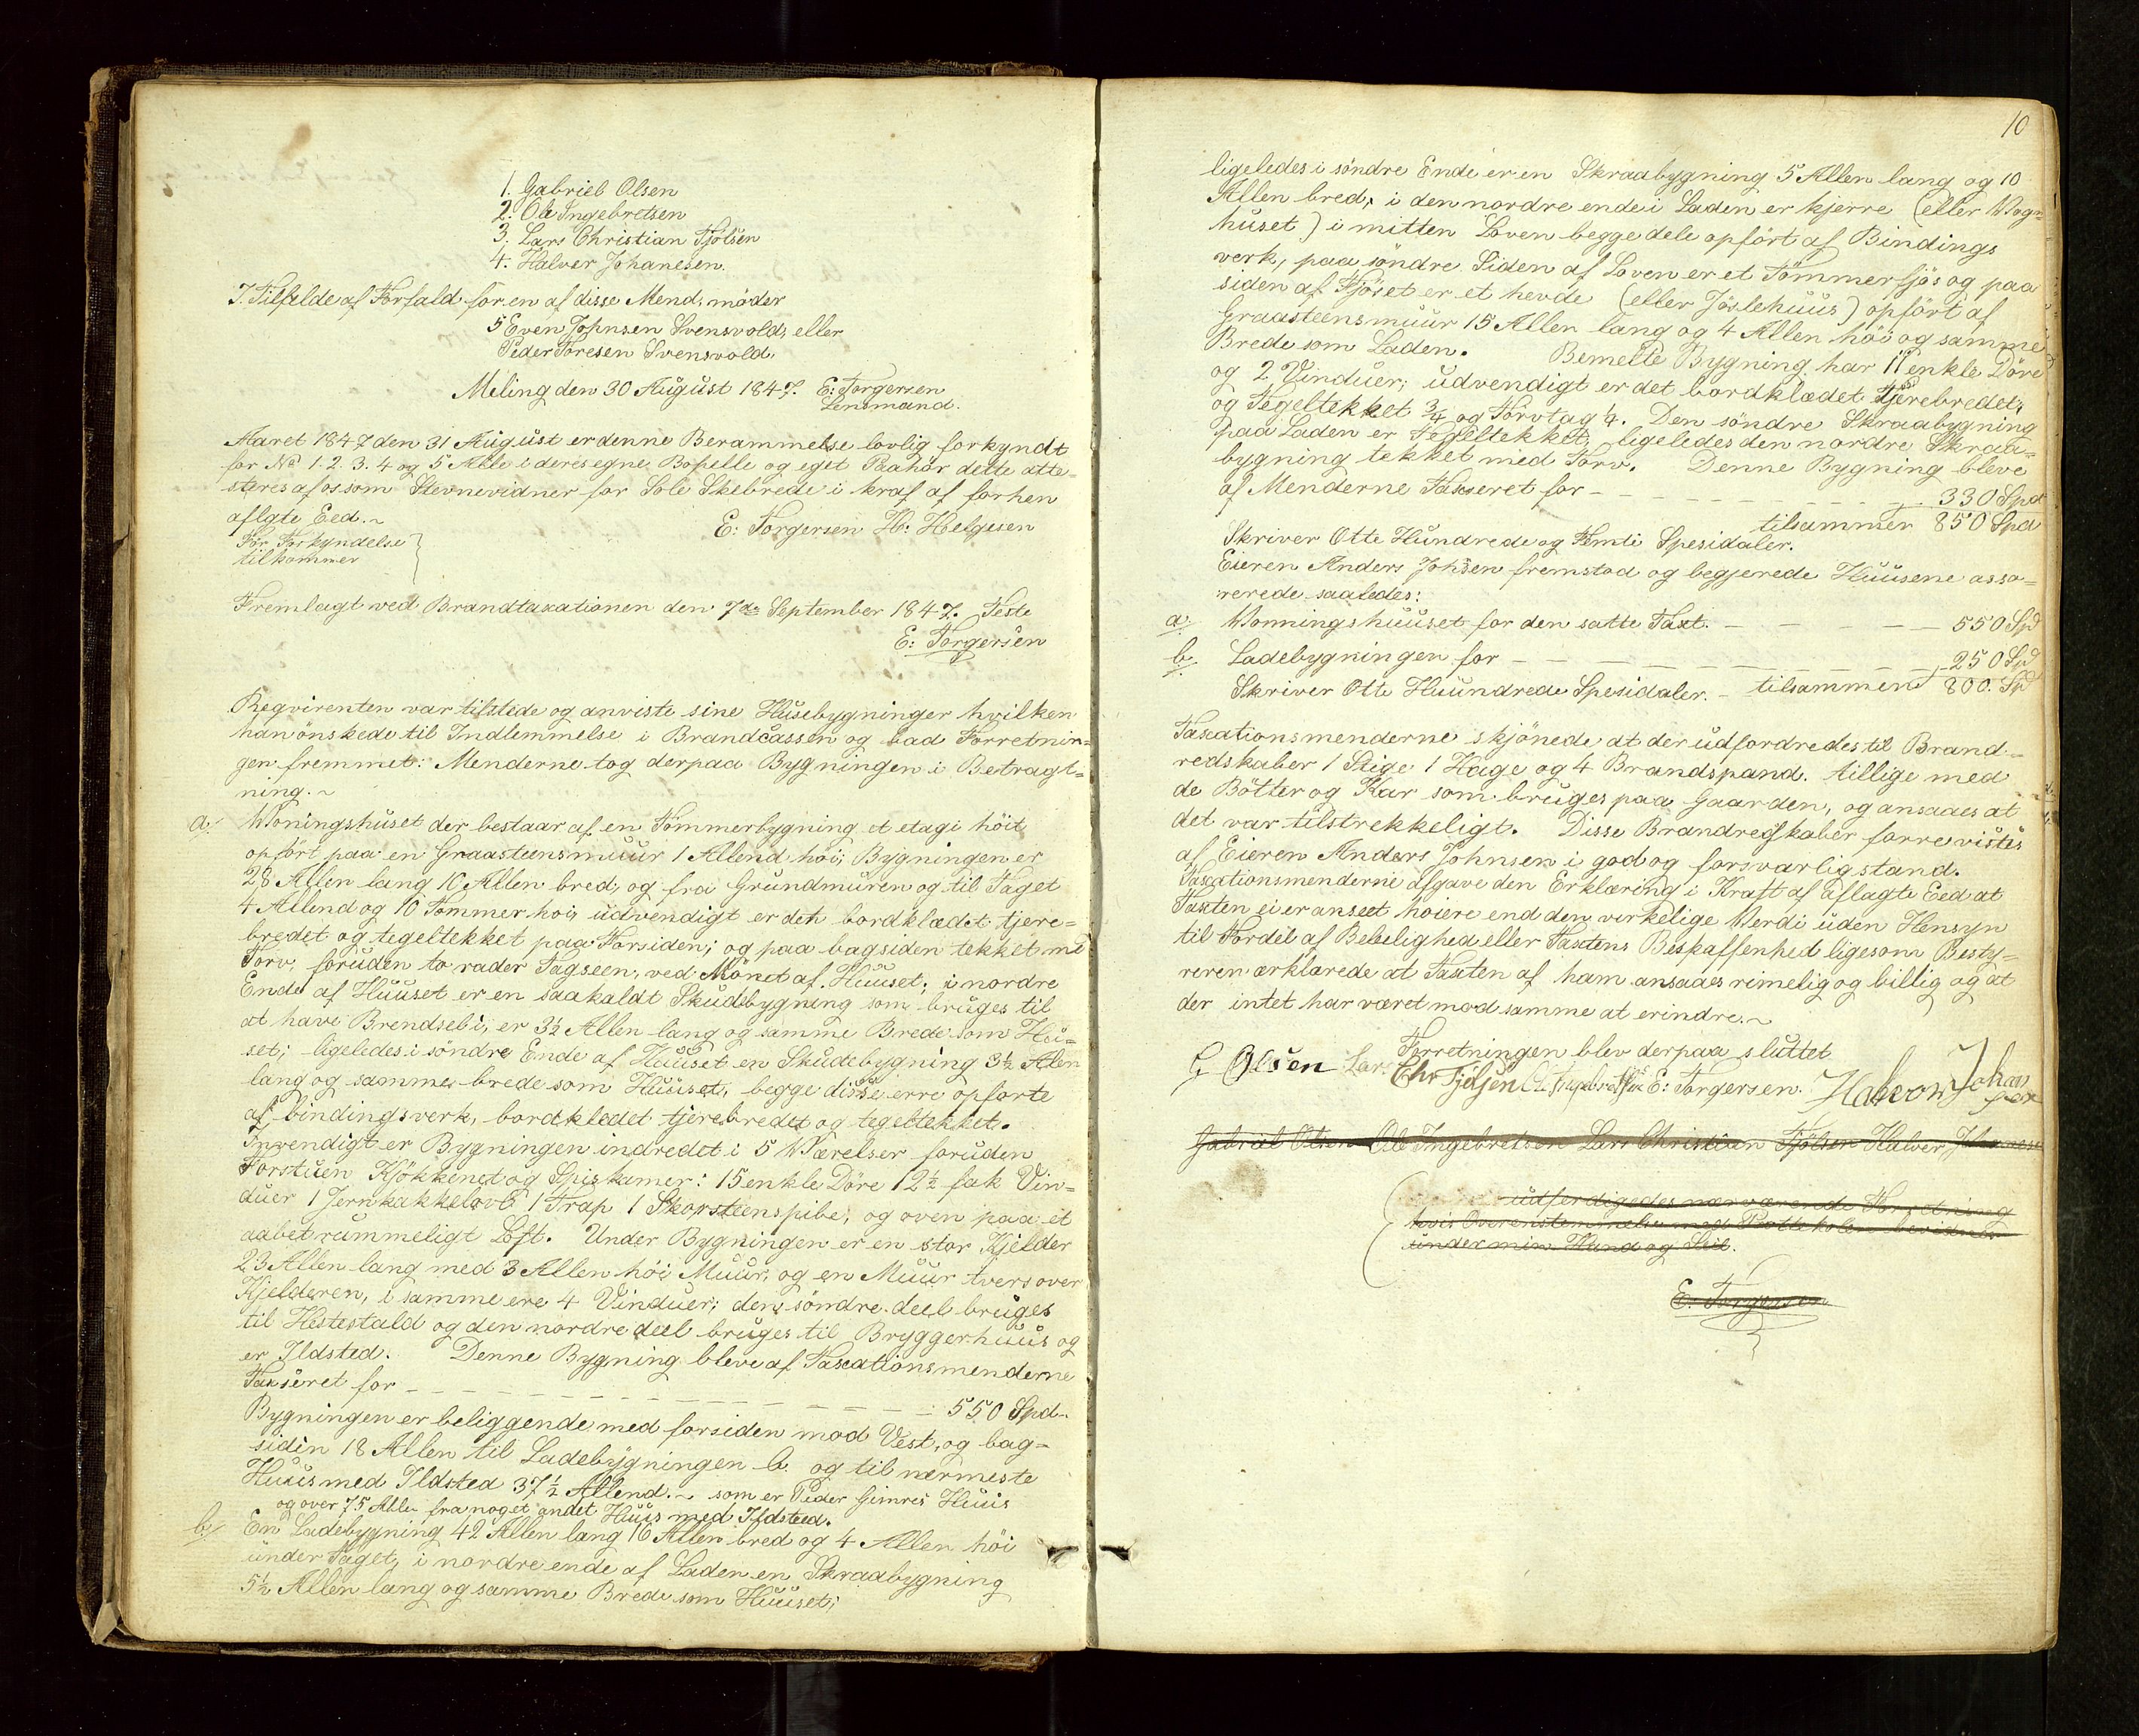 1. Gabriel Olsen
2. Ole Ingebretsen
3. Lars Christian Tjölsen
4. Halver Johanesen.
I. Tilfelde af Forfald for en af disse Mend, möder
5 Even Johnsen Svensvold, eller
Peder Toresen Svensvold.
Meling den 30 August 1847. E: Torgersen
Lensmand.
Aaret 1847 den 31 August er denne Berammelse lovlig forkyndt
for No 1. 2. 3. 4 og 5 Alle i deres egne Bopelle og eget Paahör dette atte-
steres af os som Stevnevidner for Sole Skebrede i kraf af forhen
aflgte Eed. ~
E: Torgersen H: Helgesen
For Forkyndelse
tilkommer
Fremlagt ved Brandtaxationen den 7de September 1847. Teste
E: Torgersen
Reqvirenten var tilstede og anviste sine Husebygninger hvilken
han önskede til Indlemmelse i Brandcassen og bad Forretnin=
gen fremmet: Menderne tog derpaa Bygningen i Betragt=
ning. ~
a/ Woningshuset der bestaar af en Tömmerbygning et etagi höit
opfört paa en Graasteensmuur 1 Allend höi; Bygningen er
28 Allen lang 10 Allen bred, og fra Grundmuren og til Taget
4 Allend og 10 Tommer hoi, udvendigt er det bordklædet tjere=
bredet og tegeltekket paa Forsiden; og paa bagsiden tekket md
Torv, foruden to rader Tagseen, ved Mönet af Huuset; i nordre
Ende af Huuset er en saakaldt Skudbygning som bruges til
at have Brendsel i, er 3½ Allen lang og samme Brede som Hu=
set; ligeledes i söndre Ende af Huuset en Skudebygning 3½ Alen
lang og samme brede som Huuset, begge disse erre opförte
af bindingsverk, bordkledet tjerebredet og tegeltekket.
Invendigt er Bygningen indredet i 5 Wærelser foruden
Forstuen Kjökkenet og Spiskamer: 15 enkle Döre 12½ fak Vin=
duer 1 Jernkakkelovl 1 Trap 1 Skorsteenspibe, og oven paa et
aabet rummeligt Loft. Under Bygningen er en stor Kjelder
23 Allen lang med 3 Allen höi Muur, og en Muur tvers over
Kjelderen, i samme ere 4 Vinduer; den söndre deel bruges
til Hestestald og den nordre deel bruges til Bryggerhuus og
er Ildsted. Denne Bygning bleve af Taxationsmenderne
Takseret for - - - - - - - - - - 550 Spd.
Bygningen er beliggende med forsiden mod Vest, og bag=
siden 18 Allen til Ladebygningen b. og til nærmeste
Huus med Ildsted 37½ Allend. ~ som er Peder Gimres Huus
og over 75 Allen fra noget andet Huus med Ildsteed.
b/ En Ladebygning 42 Allen lang 10 Allen bred og 4 Allen höi
under Taget, i nordre ende af Laden en Skraabygning
5½ Allen lang og samme Brede som Huuset;
10
ligeledes i söndre Ende er en Skraabygning 5 Allen lang og 10
Allen bred, i den nordre ende i Laden er kjerre (eller Vogn=
huset) i mitten Loven begge dele opfört af Bindings
verk, paa söndre Siden af Loven er et Tömmerfjös og paa
siden af Fjöset er et hevde (eller Jöslehuus) opfört af
Graasteensmuur 15 Allen lang og 4 Allen höi og samme
Brede som Laden. Bemelte Bygning har 11 enkle Döre
og 2 Vinduer; udvendigt er det bordklædet tjerebredet,
og Tegeltekket ¾ og Torvtag ¼. Den söndre Skraabygning
paa Laden er Tegeltekket, ligeledes den nordre Skraa=
bygning tekket med Torv. Denne Bygning bleve
af Menderne Takseret for - - - - - - 330 Spd
tilsammen 850 Spd
Skriver Otte Hundrede og Femti Spesidaler.
Eieren Anders Johsen fremstod og begjerede Huusene asso=
rerede saaledes:
a/ Wonningshuuset for den satte Taxt. - - - - - 550 Spd
b/ Ladebygningen for - - - - - - - - 250 Spd
Skriver Otte Huundrede Spesidaler. - tilsammen 800. Spd
Taxationsmenderne skjönede at der udfordredes til Brand=
redskaber 1 Stige 1 Hage og 4 Brandspand. tillige med
de Bötter og Kar som bruges paa Gaarden, og ansaaes at
det var tilstrekkeligt. Disse Brandredskaber forrevistes
af Eieren Anders Johnsen i god og forsvarlig stand.
Taxationsmenderne afgave den Erklæring i Kraft af aflagte Eed at
Taxten ei er anseet höiere end den verkelige Werdi uden Hensyn
til Fordeel af Beleelighed eller Taxtens Beskaffenhed ligesom Besty=
reren ærklærede at Taxten af ham ansaaes rimelig og billig og at
der intet har været mod samme at erindre. ~
Forretningen blev derpaa sluttet
G Olsen Lars Chr Tjölsen Ole Ingebretsen E: Torgersen. Halvor Johansen
Gabriel Olsen Ole Ingebretsen Lars Christian Tjölsen Halver Johanesen
udferdigedes nærværende Forretning
hvis Overenstemmelse med Protekolen bevidnes
under min Haand og Seil.
E: Torgersen